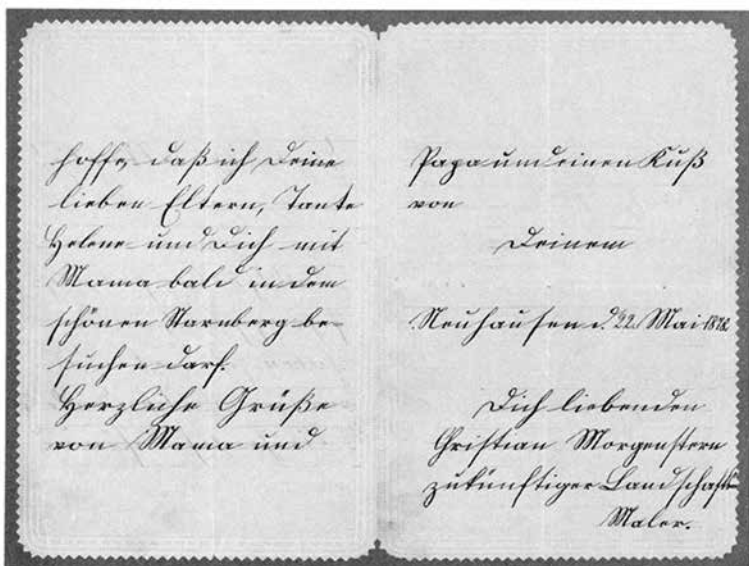 hoffe, daß ich Deine
lieben Eltern, Tante
Helene und Dich mit
Mama bald in dem
schönen Starnberg be-
suchen darf.
Herzliche Grüße
von Mama und
Papa und einen Kuß
von
Deinem
Neuhausen d. 22. Mai 1878
Dich liebenden
Christian Morgenstern
zukünftiger Landschafts-
Maler.